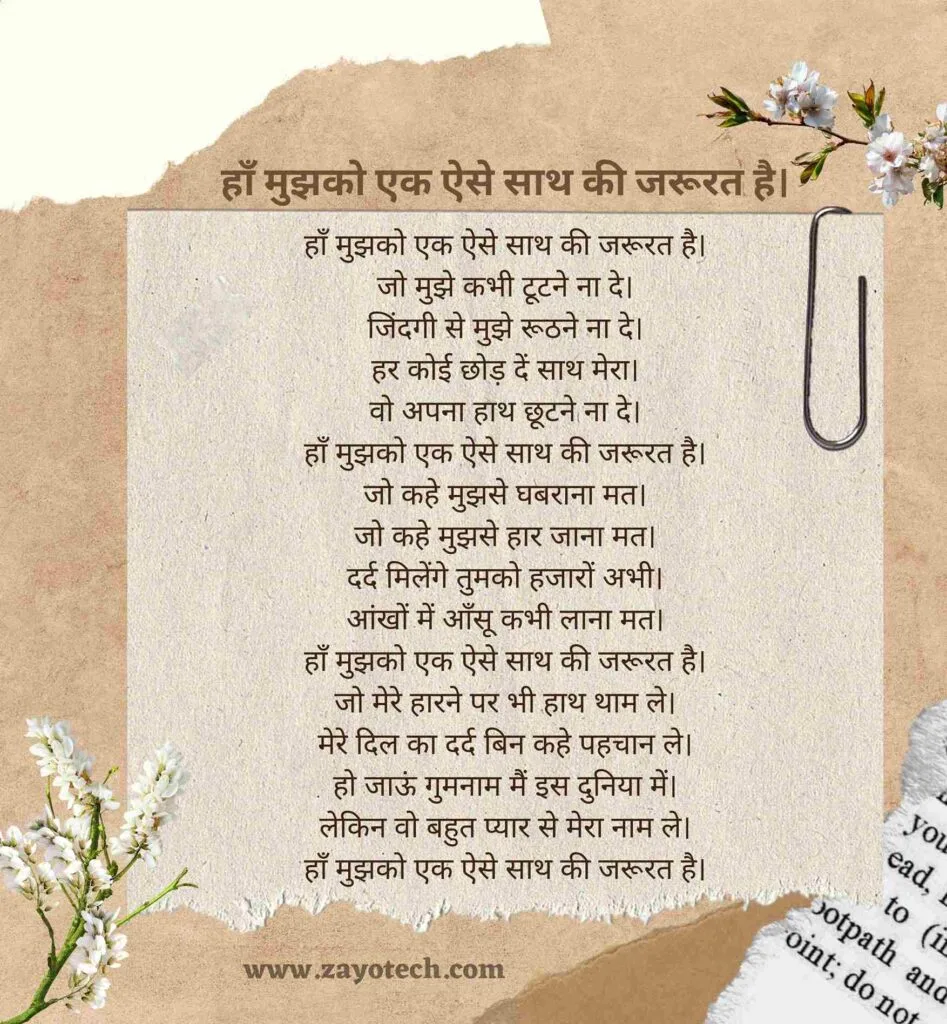 हाँ मुझको एक ऐसे साथ की जरूरत है।
हाँ मुझको एक ऐसे साथ की जरूरत है।
जो मुझे कभी टूटने ना दे।
जिंदगी से मुझे रूठने ना दे।
हर कोई छोड़ दें साथ मेरा।
वो अपना हाथ छूटने ना दे।
हाँ मुझको एक ऐसे साथ की जरूरत है।
जो कहे मुझसे घबराना मत।
जो कहे मुझसे हार जाना मत।
दर्द मिलेंगे तुमको हजारों अभी।
आंखों में आँसू कभी लाना मत।
हाँ मुझको एक ऐसे साथ की जरूरत है।
जो मेरे हारने पर भी हाथ थाम ले।
मेरे दिल का दर्द बिन कहे पहचान ले।
हो जाऊं गुमनाम मैं इस दुनिया में।
लेकिन वो बहुत प्यार से मेरा नाम ले।
हाँ मुझको एक ऐसे साथ की जरूरत है।
www.zayotech.com
you
ead,
to
and
oint; do not